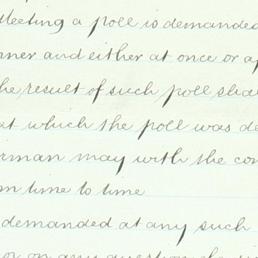 Meeting a poll is demanded
nner and either at once or a
he result of such poll shal
at which the poll was de
irman may with the con
m time to time
demanded at any such
or on any question the